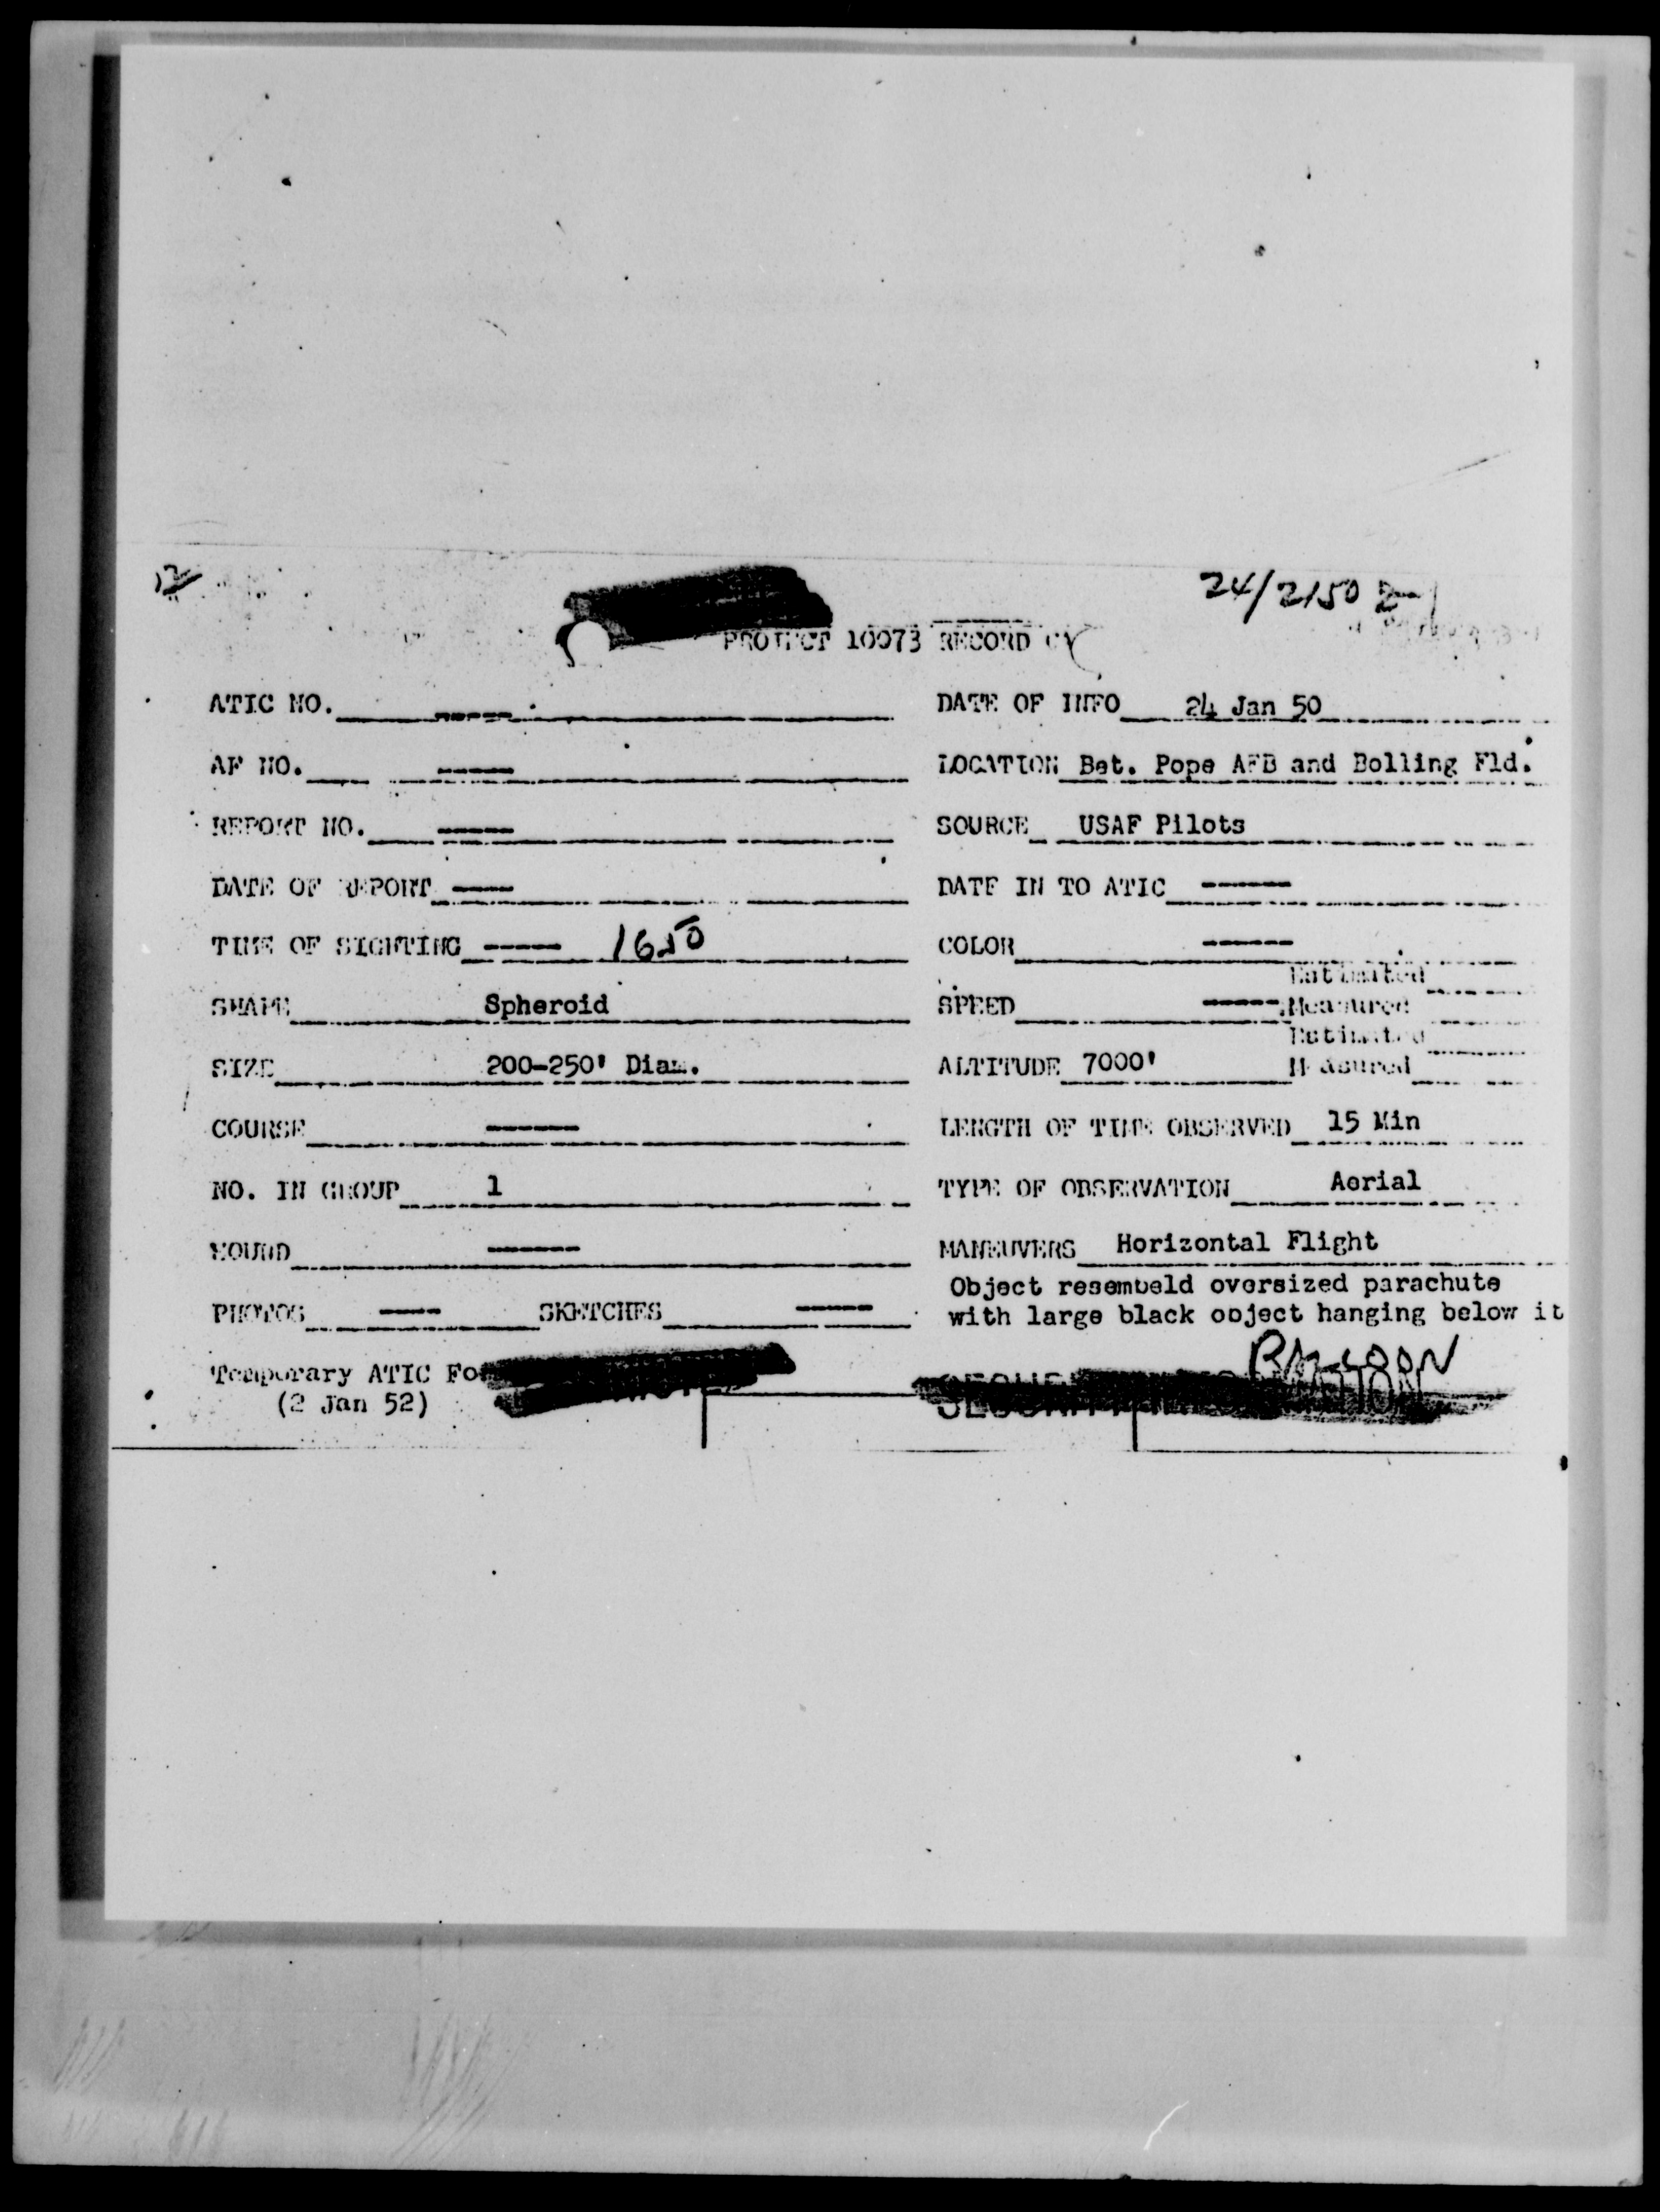 12
24/2150 Z
PROJECT 10073 RECORD
ATIC NO. ----- DATE OF INFO 24 Jan 50
AF NO. ----- LOCATION Bet. Pope AFB and Bolling Fld.
REPORT NO. ----- SOURCE USAF Pilots
DATE OF REPORT ---- DATE IN TO ATIC ------
TIME OF SIGHTING ----- 1650 COLOR ------
Estimated
SHAPE Spheroid SPEED ----- Measured
Estimated
SIZE 200-250' Diam. ALTITUDE 7000' Measured
COURSE ------ LENGTH OF TIME OBSERVED 15 Min
NO. IN GROUP 1 TYPE OF OBSERVATION Aerial
SOUND ------ MANEUVERS Horizontal Flight
Object resembeld oversized parachute
PHOTOS ---- SKETCHES ----- with large black object hanging below it
BALLOON
Temporary ATIC
(2 Jan 52)